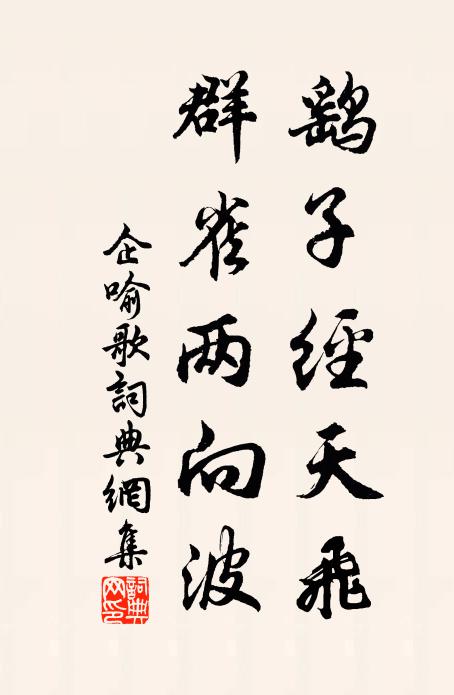 鹞子經天飛
群雀两向波
企喻歌詞典網集
詞典网印